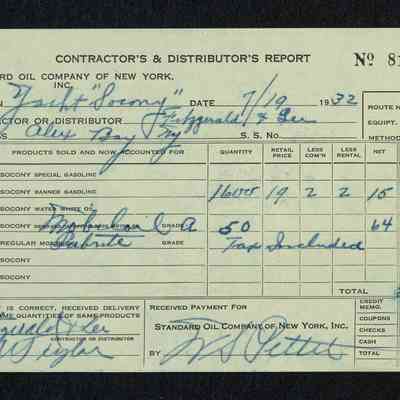 CONTRACTOR'S & DISTRIBUTOR'S REPORT Nº 81
RD OIL COMPANY OF NEW YORK, INC.
N Yacht "Socony" DATE 7/19 1932
CTOR OR DISTRIBUTOR Fitzgerald & Lee ROUTE N
Alex Bay NY S. S. No. EQUIPT.
METHOD
PRODUCTS SOLD AND NOW ACCOUNTED FOR QUANTITY RETAIL PRICE LESS COM'N LESS RENTAL NET
SOCONY SPECIAL GASOLINE
SOCONY BANNER GASOLINE 19 2 2 15
SOCONY WATER WHITE OIL
SOCONY Mobiloil GRADE A 50 64
REGULAR GRADE Tax Included
SOCONY
SOCONY
TOTAL
IS CORRECT, RECEIVED DELIVERY
AME QUANTITIES OF SAME PRODUCTS
gerald & Lee
CONTRACTOR OR DISTRIBUTOR
RECEIVED PAYMENT FOR
STANDARD OIL COMPANY OF NEW YORK, INC.
BY
CREDIT MEMO.
COUPONS
CHECKS
CASH